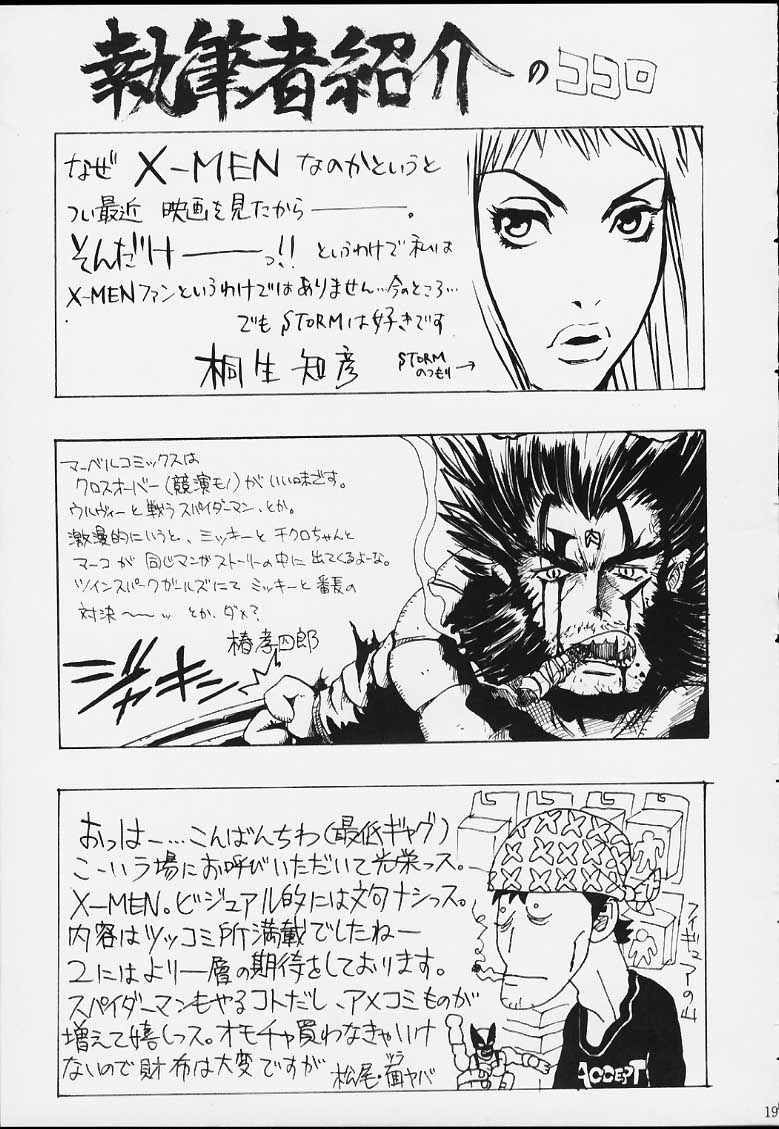 執筆者紹介のココロ
なぜ X-MEN なのかというと
つい最近 映画を見たから―――。
そんだけ――っ!! というわけで私は
X-MENファンというわけではありません…今のところ…
でも STORMは好きです
桐生知彦
STORM
のつもり→
マーベルコミックスは
クロスオーバー(競演モノ)がいい味です。
ウルヴィーと戦うスパイダーマン、とか。
激漫的にいうと、ミッキーとチクロちゃんと
マーコが同じマンガストーリーの中に出てくるよーな。
ツインスパークガールズにてミッキーと番長の
対決〜〜〃 とか、ダメ?
椿孝四郎
ジャキン
おっはー…こんばんちわ(最低ギャグ)
こーいう場にお呼びいただいて光栄っス。
X-MEN。ビジュアル的には文句ナシっス。
内容はツッコミ所満載でしたねー
2にはより一層の期待をしております。
スパイダーマンもやるコトだし、アメコミものが
増えて嬉しっス。オモチャ買わなきゃいけ
ないので財布は大変ですが
松尾・面ヤバ
ヅラ
フィギュアの山
ACCEPT
19